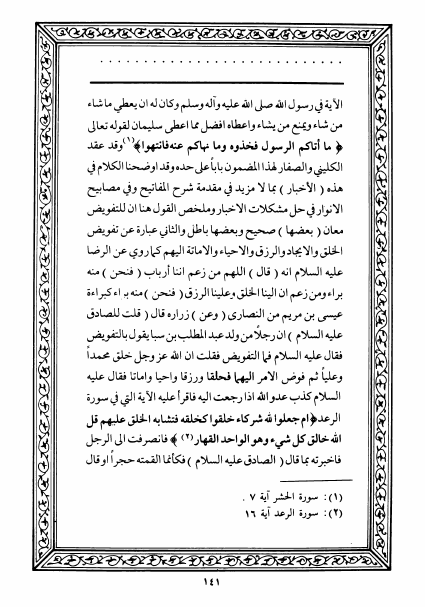 الآية في رسول الله صلى الله عليه وآله وسلم وكان له ان يعطي ماشاء
من شاء ويمنع من يشاء واعطاه افضل مما اعطى سليمان لقوله تعالى
﴿ ما أتاكم الرسول فخذوه وما نهاكم عنه فانتهوا﴾(١) وقد عقد
الكليني والصفار لهذا المضمون باباً على حده وقد اوضحنا الكلام في
هذه ( الأخبار ) بما لا مزيد في مقدمة شرح المفاتيح وفي مصابيح
الانوار في حل مشكلات الاخبار وملخص القول هنا ان للتفويض
معان ( بعضها ) صحيح وبعضها باطل والثاني عبارة عن تفويض
الخلق والايجاد والرزق والاحياء والاماتة اليهم كما روي عن الرضا
عليه السلام انه ( قال ) اللهم من زعم اننا أرباب ( فنحن ) منه
براء ومن زعم ان الينا الخلق وعلينا الرزق ( فنحن ) منه براء كبراءة
عيسى بن مريم من النصارى ( وعن ) زراره قال ( قلت للصادق
عليه السلام ) ان رجلاً من ولد عبد المطلب بن سبا يقول بالتفويض
فقال عليه السلام فما التفويض فقلت ان الله عز وجل خلق محمداً
وعلياً ثم فوض الامر اليهما فخلقا ورزقا واحيا واماتا فقال عليه
السلام كذب عدو الله اذا رجعت اليه فاقرأ عليه الآية التي في سورة
الرعد ﴿ام جعلوا لله شركاء خلقوا كخلقه فتشابه الخلق عليهم قل
الله خالق كل شيء وهو الواحد القهار (٢) ﴾ فانصرفت الى الرجل
فاخبرته بما قال ( الصادق عليه السلام ) فكأنما القمته حجراً او قال
(١): سورة الحشر آية ٧ .
(٢): سورة الرعد آية ١٦
١٤١